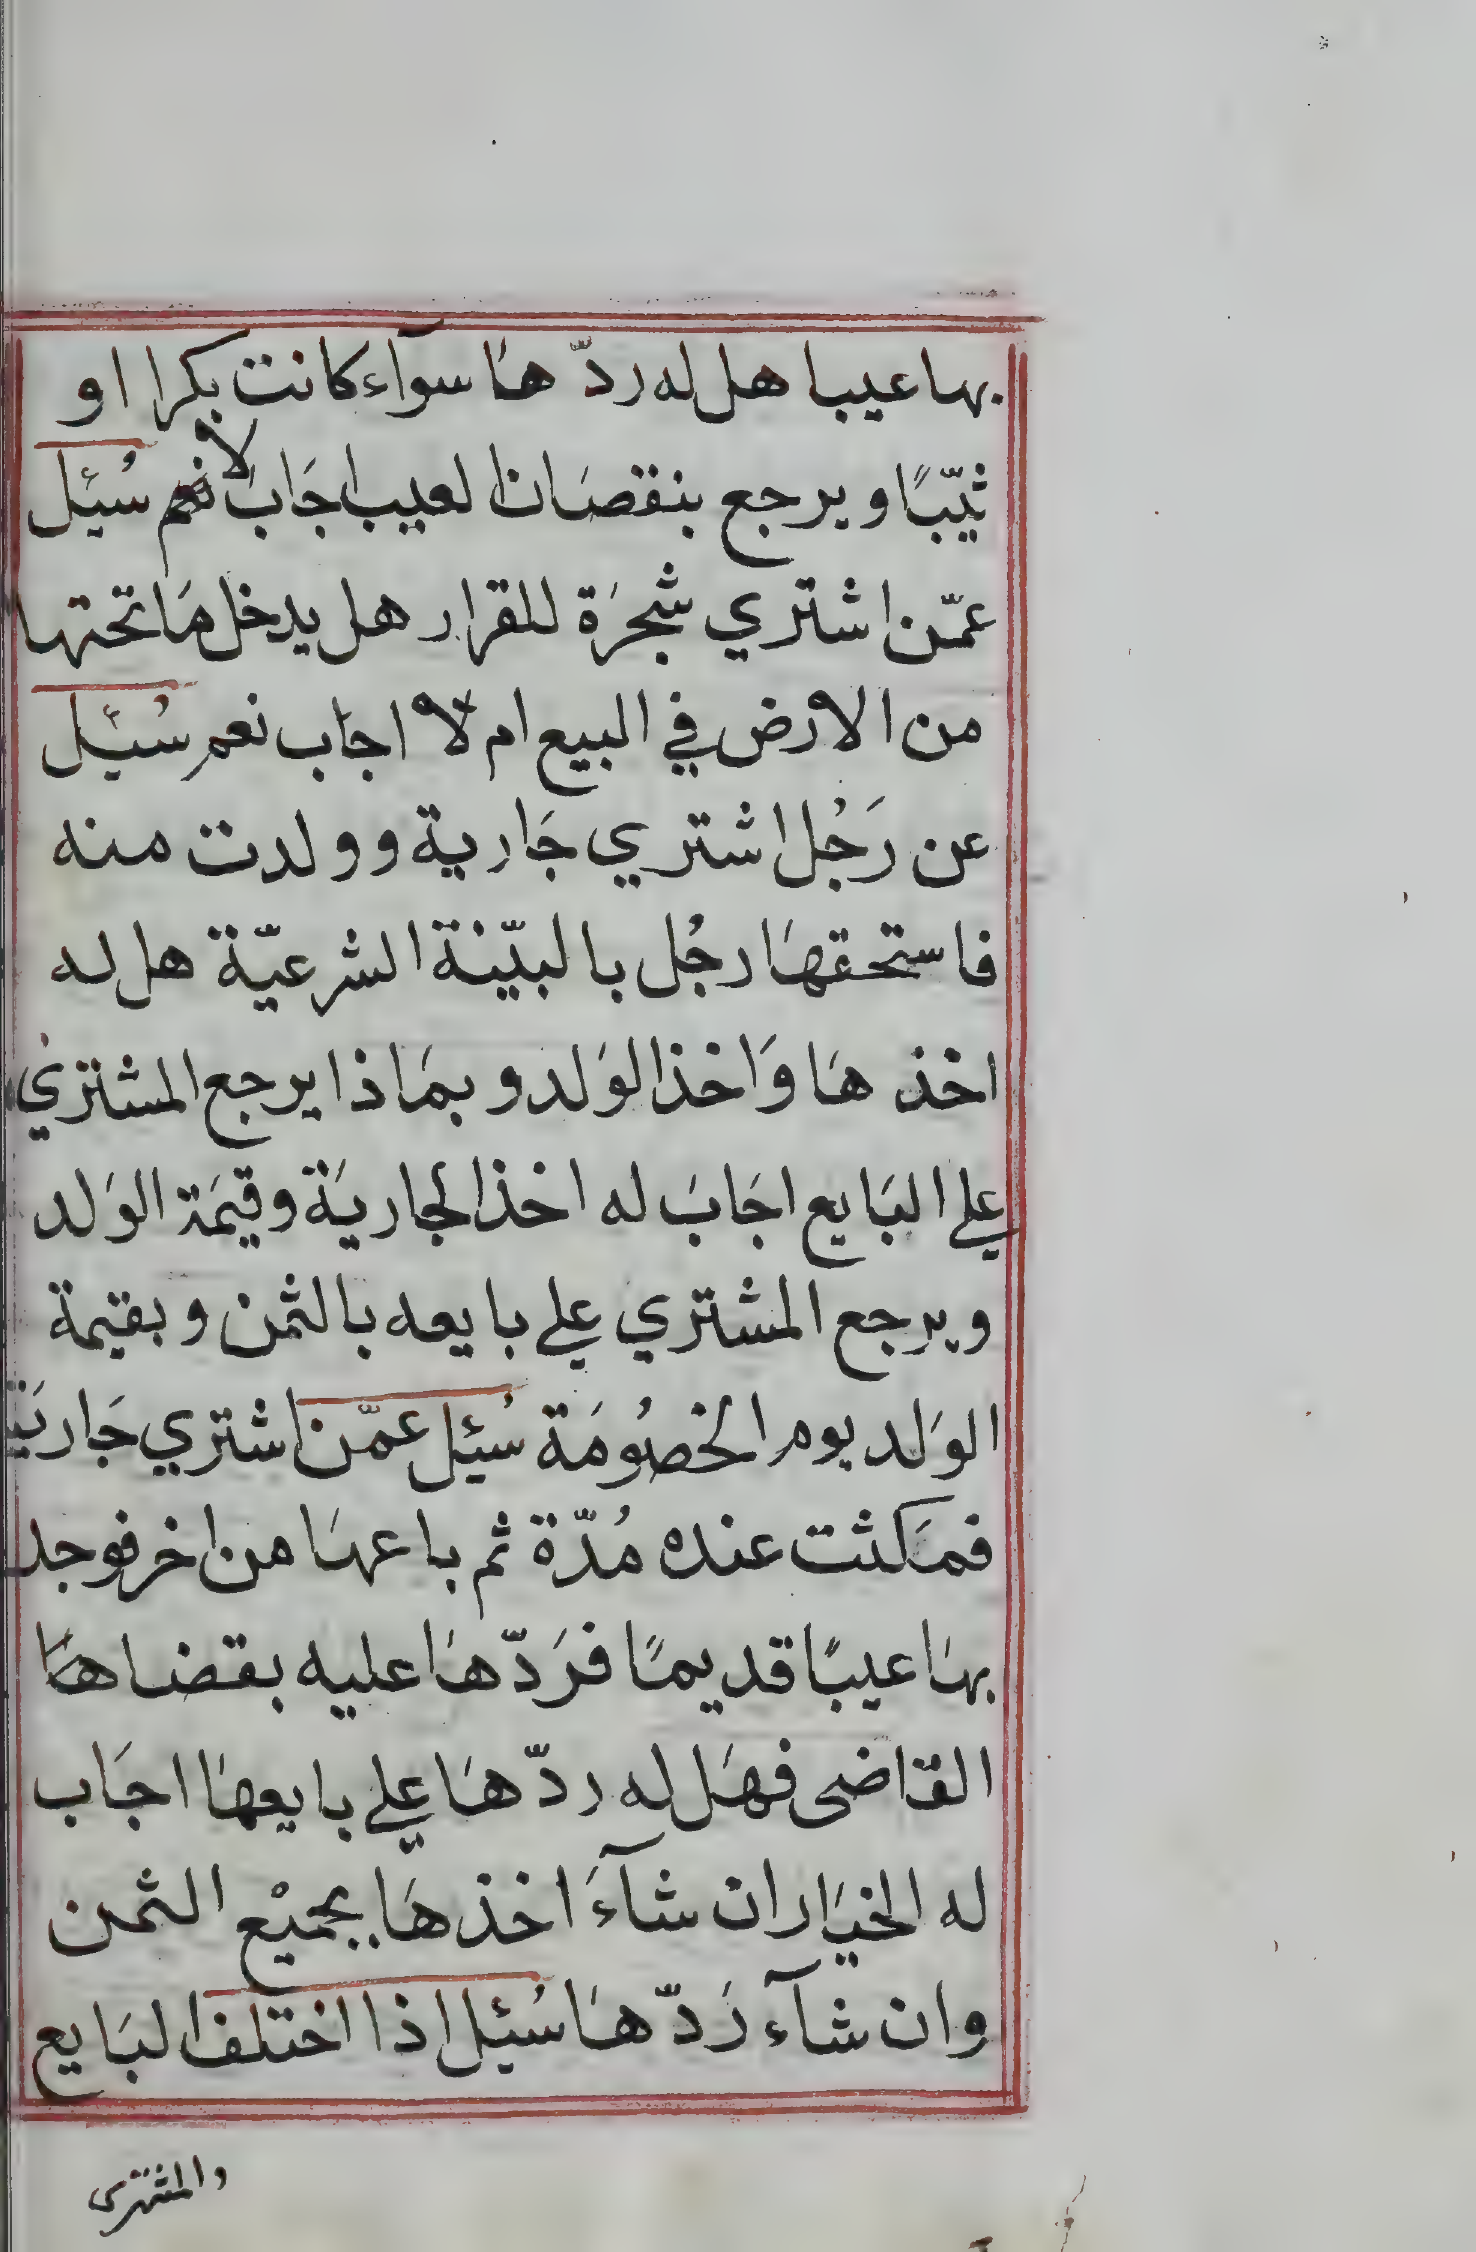 بها عيبا هل له ردّها سوآء كانت بكرا او
ثيّبًا ويرجع بنقصَان العيب اجَابَ لا نعم سُئل
عمّن اشتري شجرَة للقرار هل يدخل مَا تحتها
من الارض في البيع ام لا اجَاب نعم سُئل
عن رَجُل اشتري جَارية وولدت منه
فاستحقهَا رجُل بالبيّنة الشرعيّة هل له
اخذهَا وَاخذ الوَلد وبمَاذا يرجع المشتري
علي البَايع اجَابَ له اخذ الجاريَة وقيمَة الوَلد
ويرجع المشتري علي بايعه بالثمن وبقيمة
الوَلد يوم الخصُومَة سُئل عمّن اشتري جَاريَة
فمَكثت عنده مُدّة ثم باعهَا من اخر فوجد
بهَا عيبًا قديمًا فرَدّهَا عليه بقضاهَا
القاضى فهَل له ردّهَا علي بايعهَا اجَاب
له الخيَار ان شآءَ اخذهَا بجميْع الثمن
وان شآء رَدّهَا سُئل اذا اختلف البَايع
والمشترى